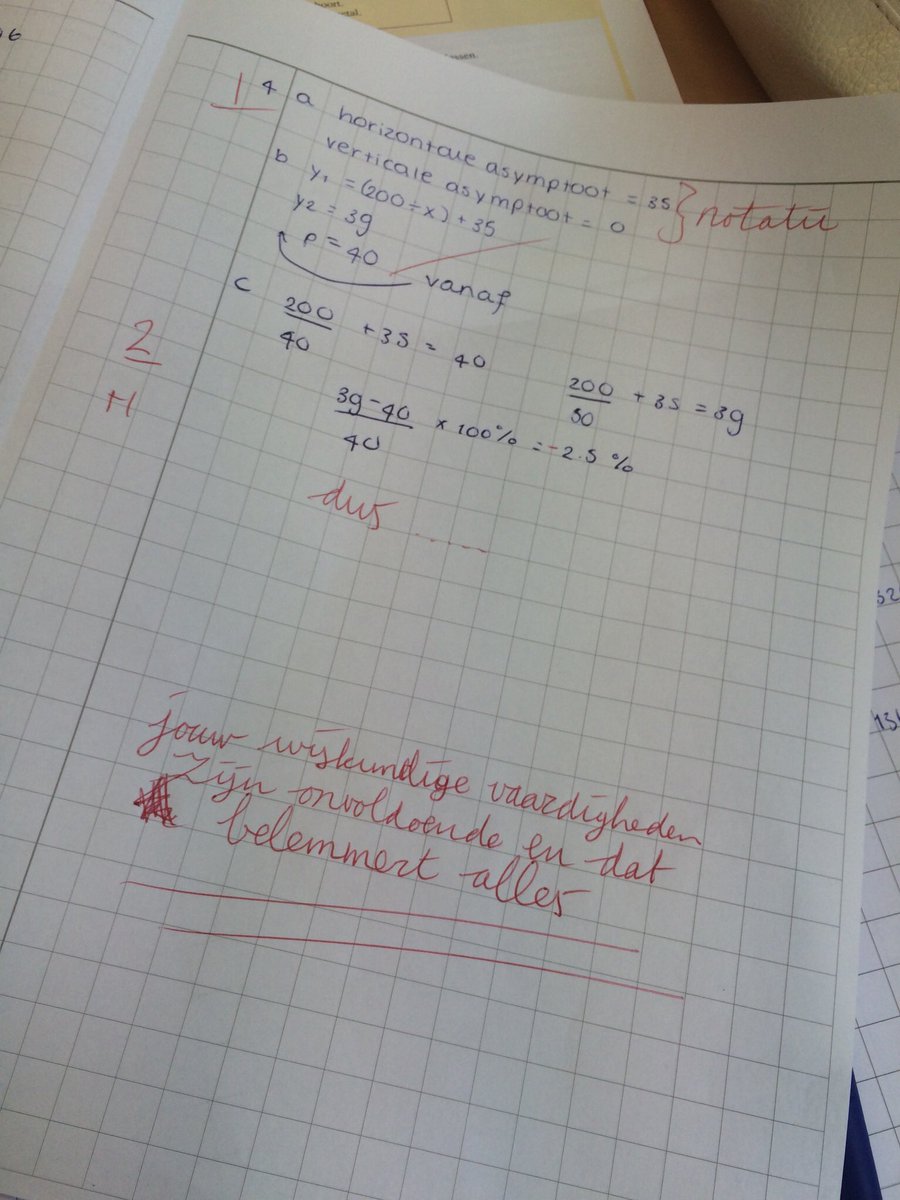 06
oort.
tal.
assen.
1 4 a horizontale asymptoot = 35 } notatie
verticale asymptoot = 0
b y1 = (200 ÷ x) + 35
y2 = 39
p = 40
vanaf
c 200/40 + 35 = 40 200/50 + 35 = 39
2
39-40/40 × 100% = -2.5 %
dus ......
jouw wiskundige vaardigheden
zijn onvoldoende en dat
belemmert alles